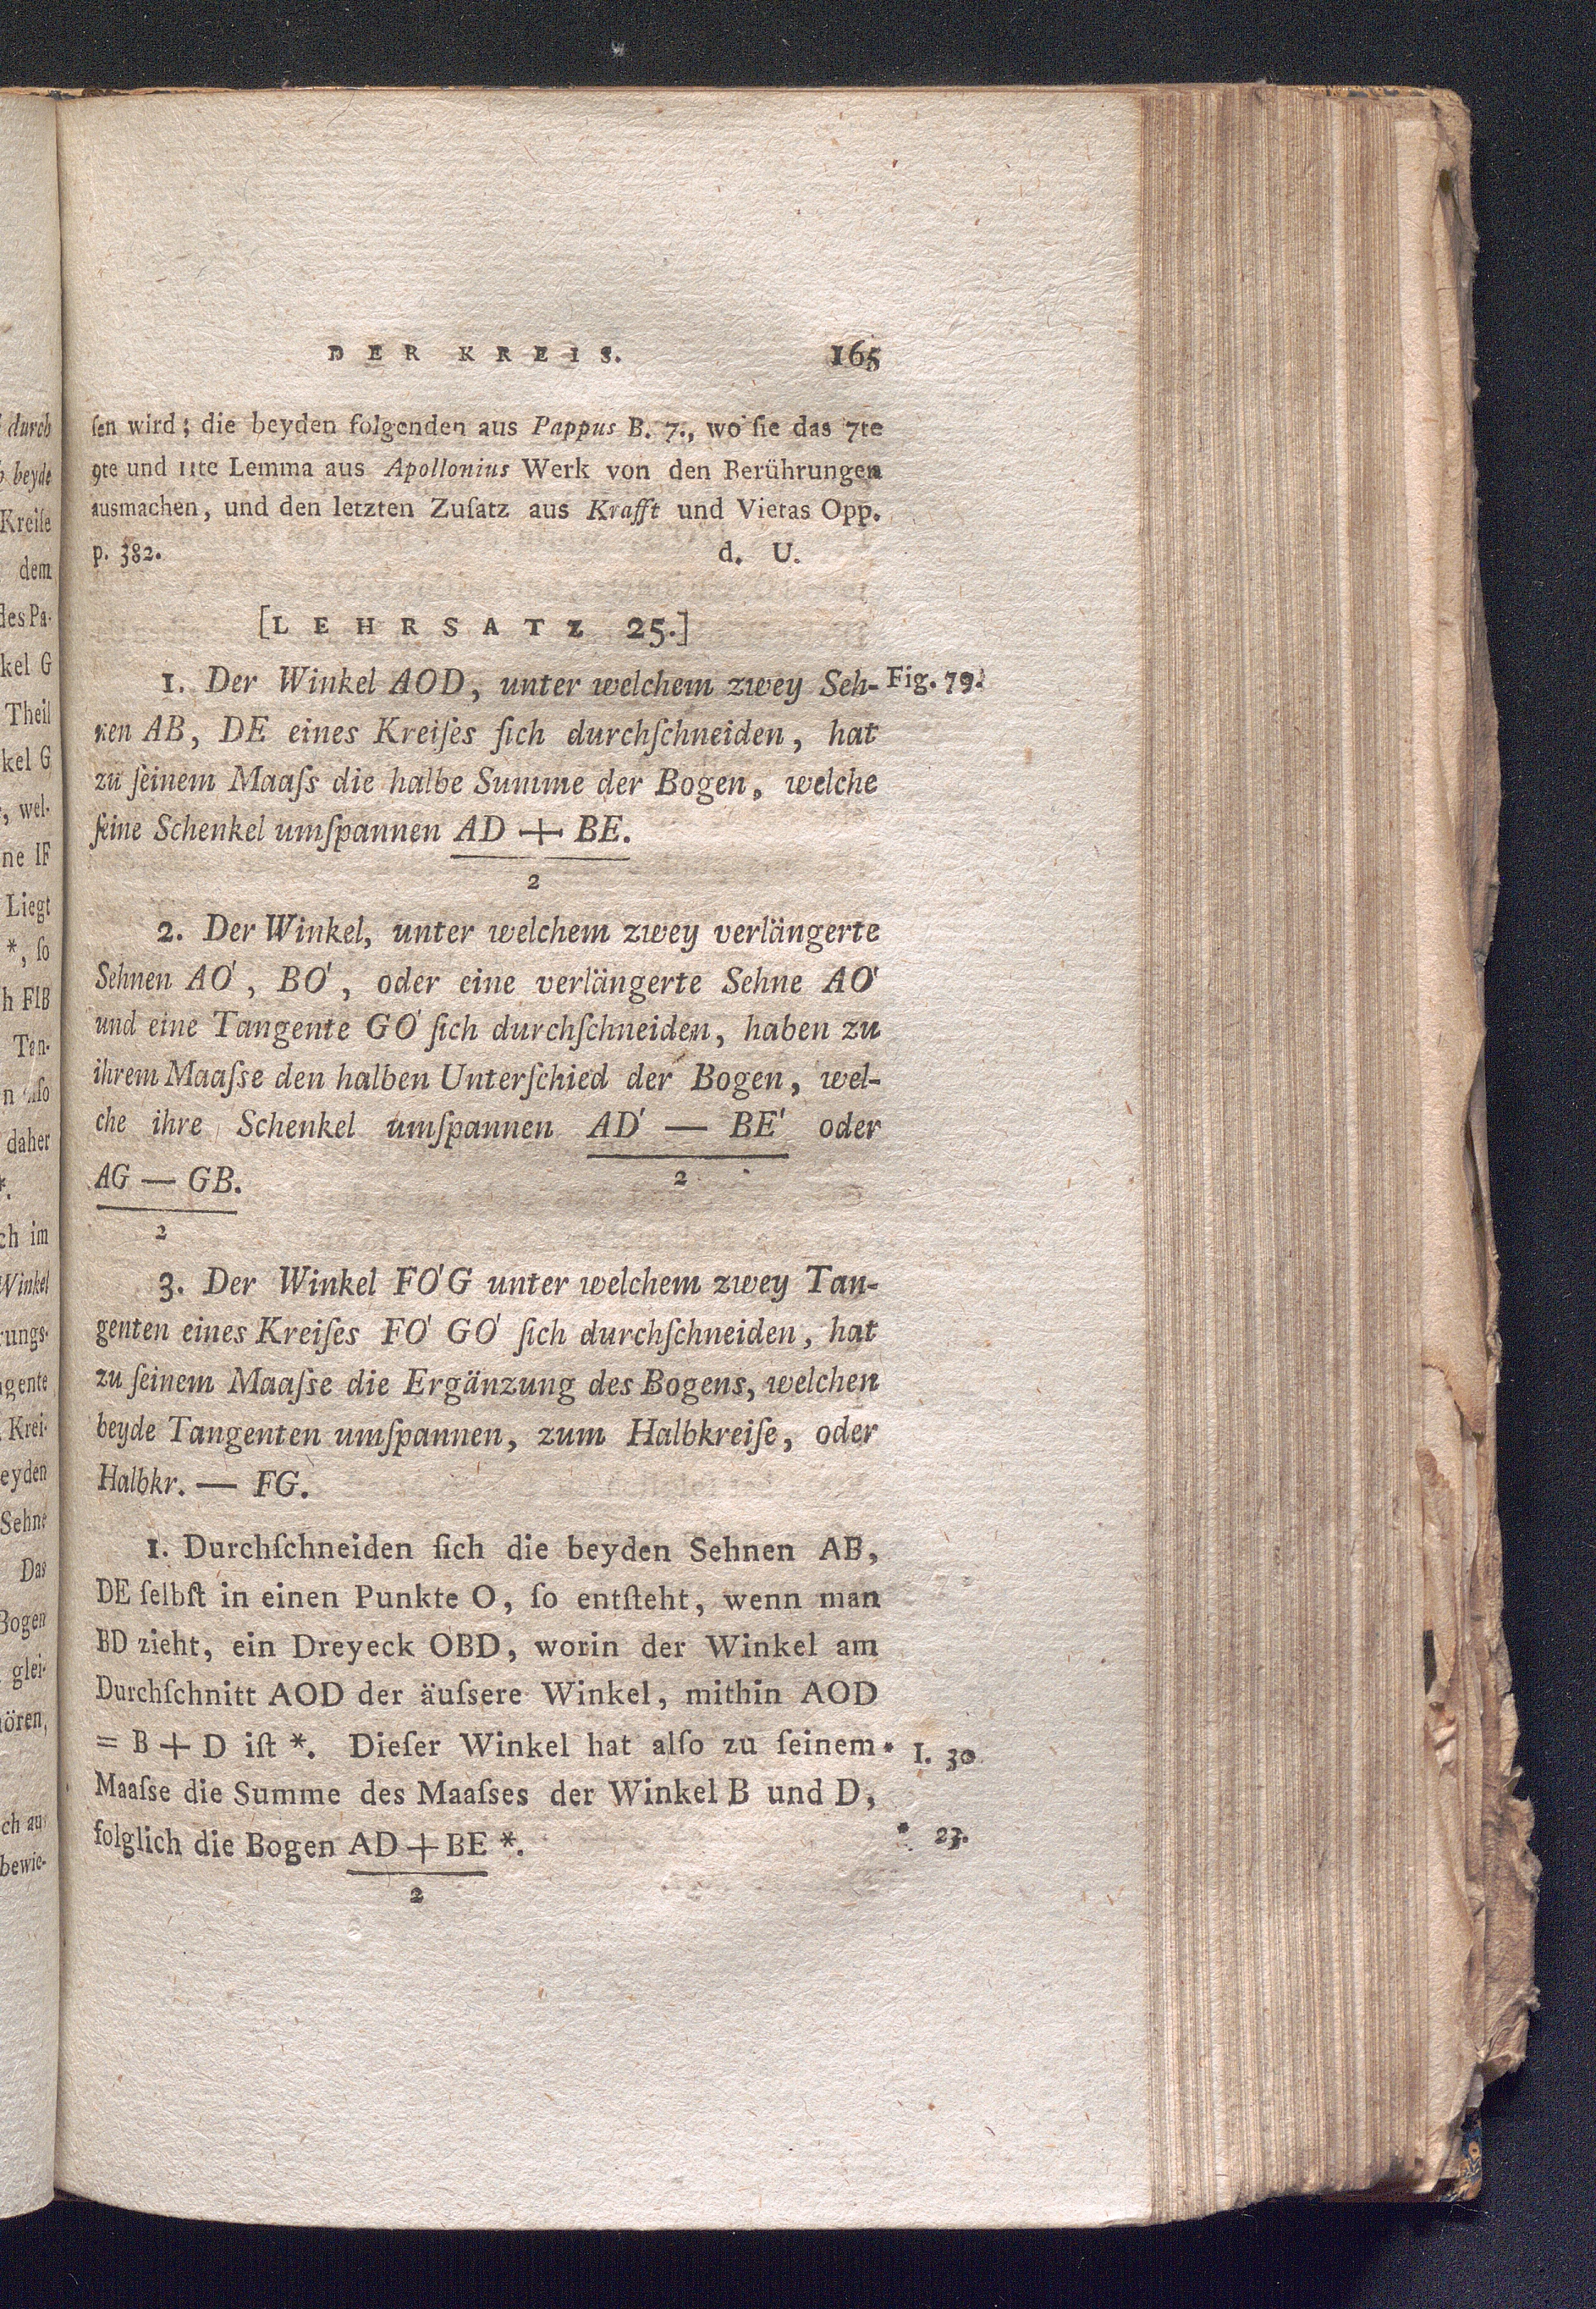 DER KREIS. 165
ſen wird; die beyden folgenden aus Pappus B. 7., wo ſie das 7te
9te und 11te Lemma aus Apollonius Werk von den Berührungen
ausmachen, und den letzten Zuſatz aus Krafft und Vietas Opp.
p. 382. d. U.
[LEHRSATZ 25.]
1. Der Winkel AOD, unter welchem zwey Seh- Fig. 79.
nen AB, DE eines Kreiſes ſich durchſchneiden, hat
zu ſeinem Maaſs die halbe Summe der Bogen, welche
ſeine Schenkel umſpannen AD + BE.
2
2. Der Winkel, unter welchem zwey verlängerte
Sehnen AO', BO', oder eine verlängerte Sehne AO'
und eine Tangente GO' ſich durchſchneiden, haben zu
ihrem Maaſse den halben Unterſchied der Bogen, wel-
che ihre Schenkel umſpannen AD' — BE' oder
2
AG — GB.
2
3. Der Winkel FO'G unter welchem zwey Tan-
genten eines Kreiſes FO' GO' ſich durchſchneiden, hat
zu ſeinem Maaſse die Ergänzung des Bogens, welchen
beyde Tangenten umſpannen, zum Halbkreiſe, oder
Halbkr. — FG.
1. Durchſchneiden ſich die beyden Sehnen AB,
DE ſelbſt in einen Punkte O, ſo entſteht, wenn man
BD zieht, ein Dreyeck OBD, worin der Winkel am
Durchſchnitt AOD der äuſsere Winkel, mithin AOD
= B + D iſt *. Dieſer Winkel hat alſo zu ſeinem * I. 30
Maaſse die Summe des Maaſses der Winkel B und D,
folglich die Bogen AD + BE *. * 23.
2
durch
beyde
Kreiſe
dem
des Pa-
kel G
Theil
kel G
, wel-
ne IF
Liegt
*, ſo
h FIB
Tan-
daher
*.
ch im
Winkel
rungs-
gente
Krei-
eyden
Sehne
Das
Bogen
glei-
ören,
bewie-